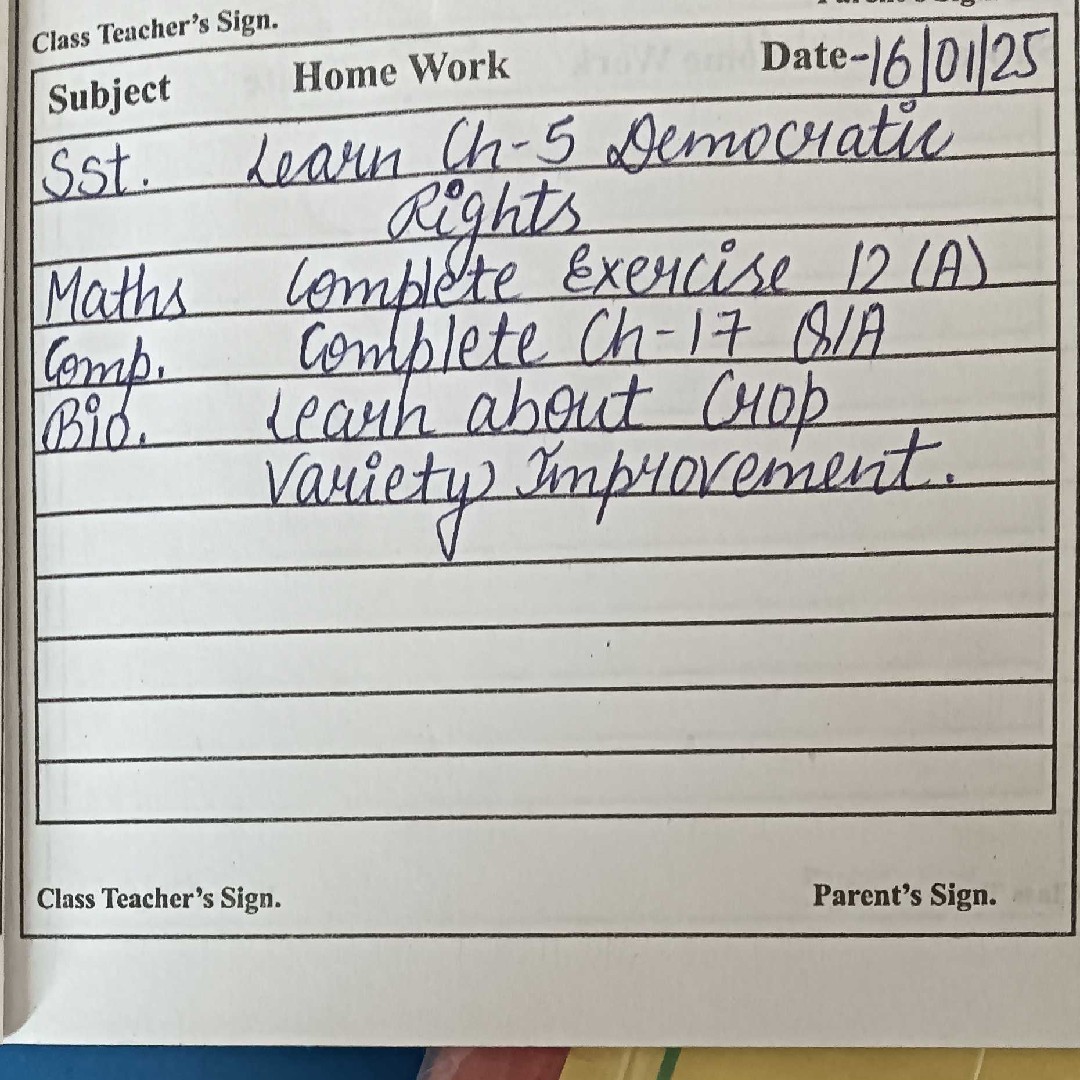 Class Teacher's Sign.
Subject Home Work Date-16/01/25
Sst. Learn Ch-5 Democratic
Rights
Maths Complete Exercise 12 (A)
Comp. Complete Ch-17 Q/A
Bio. Learn about Crop
Variety Improvement.
Class Teacher's Sign. Parent's Sign.